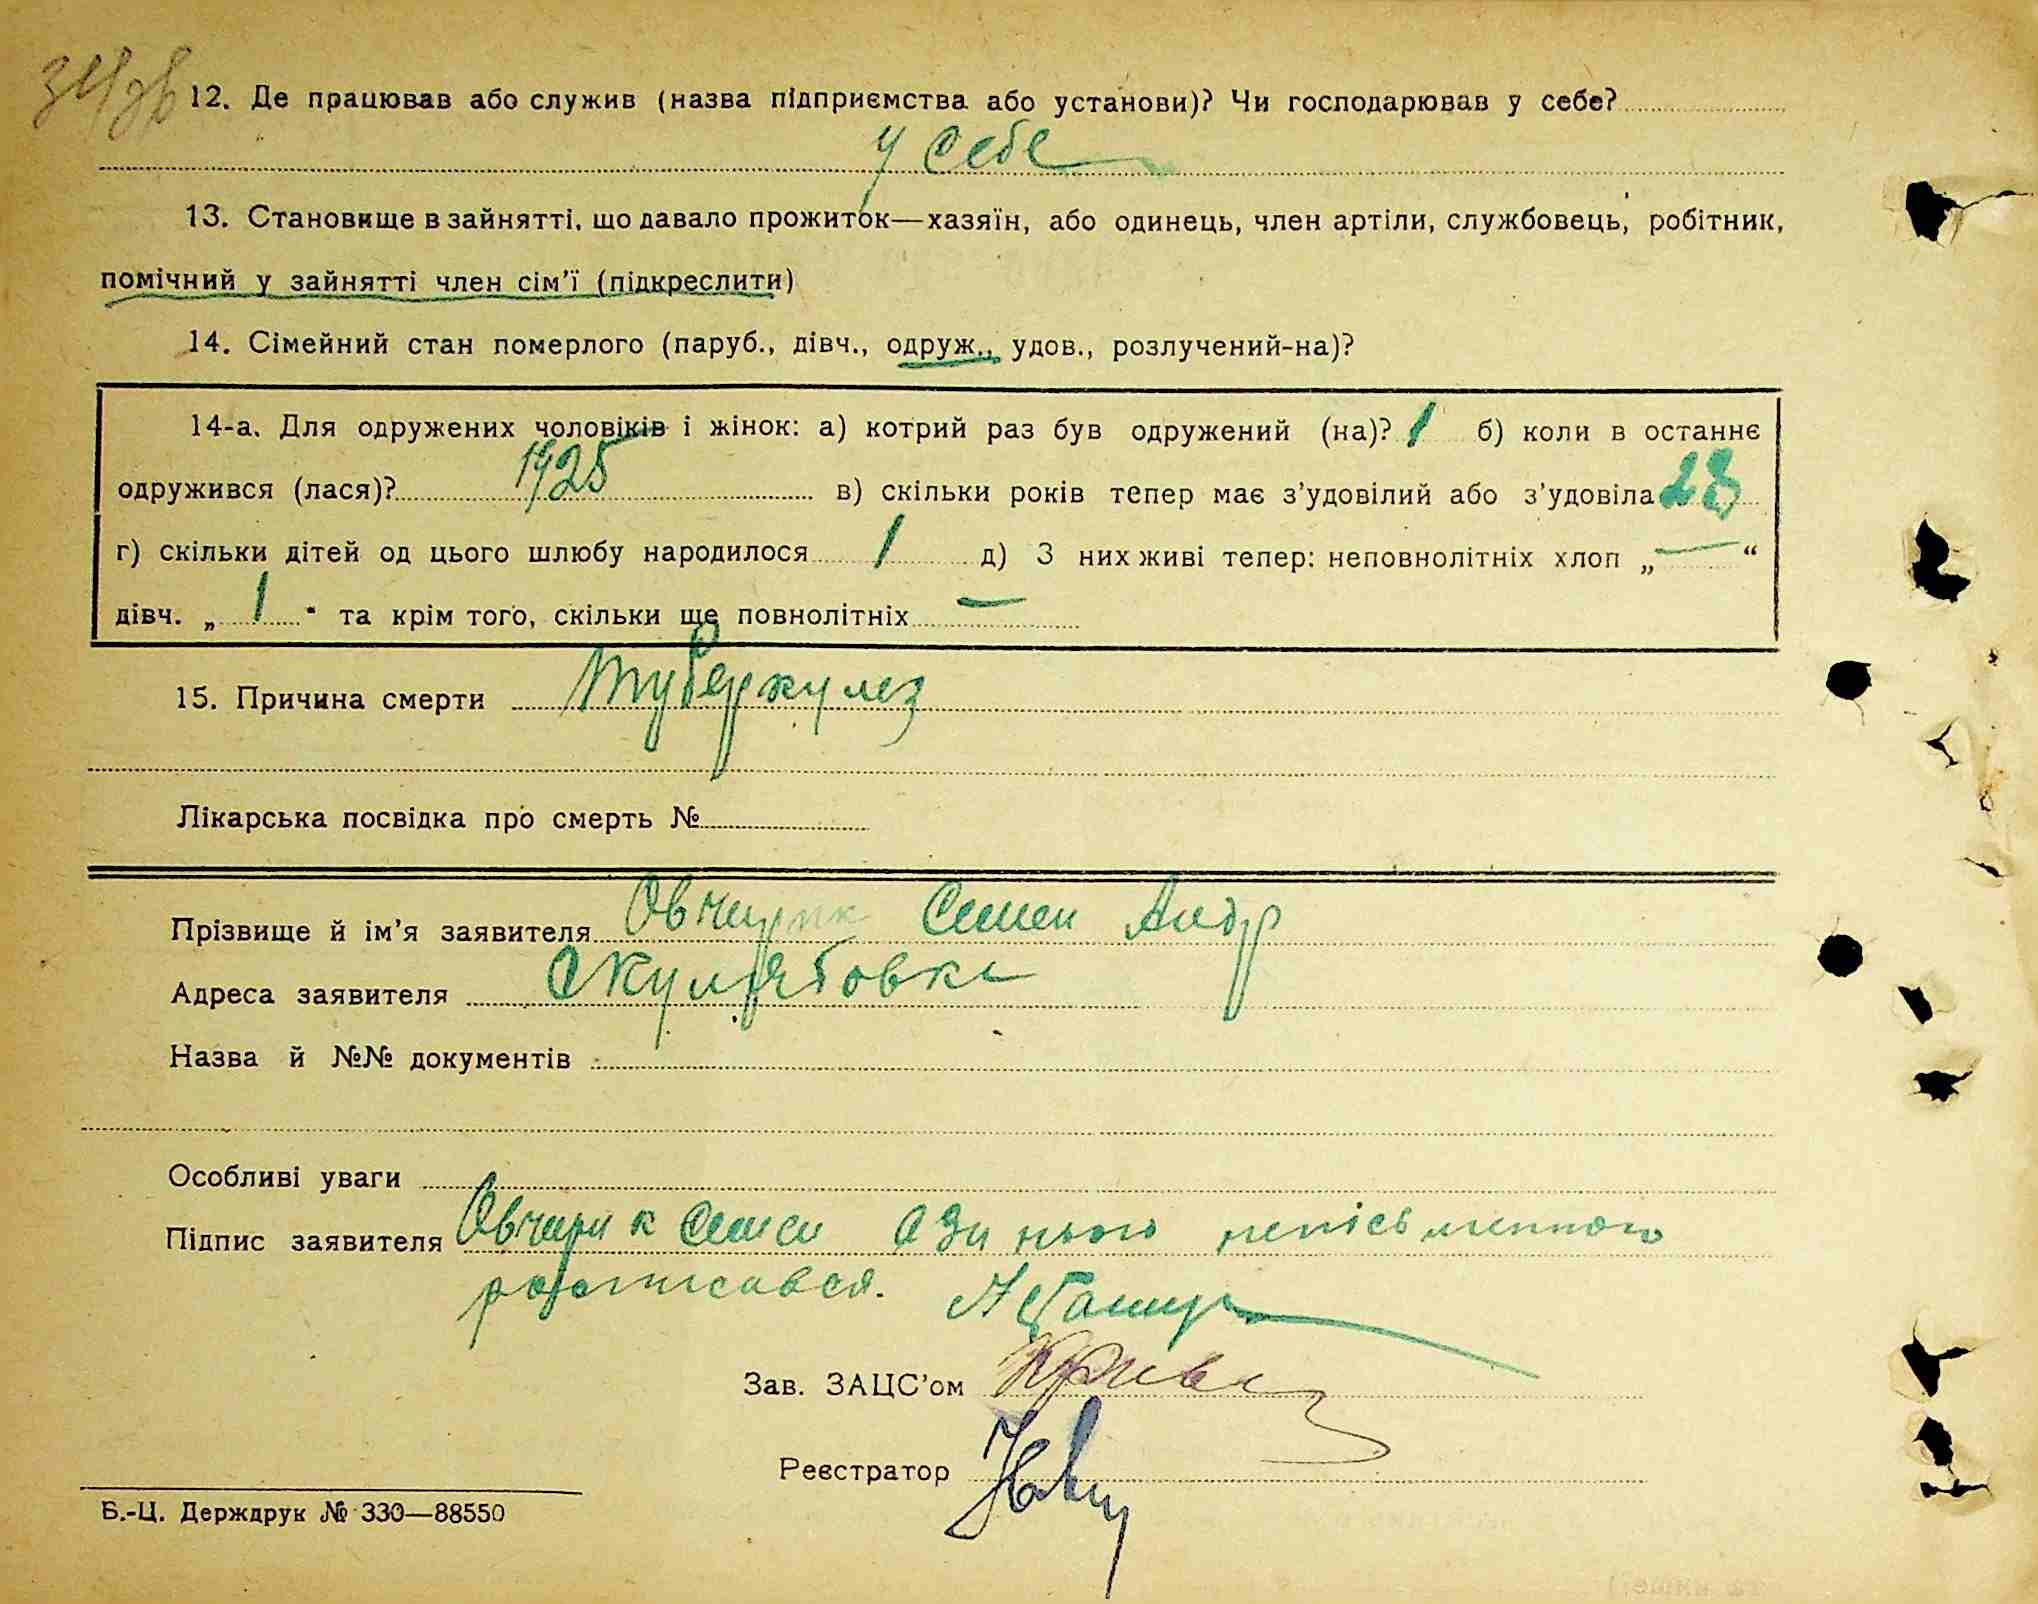 12. Де працював або служив (назва підприємства або установи)? Чи господарював у себе?
у себе
13. Становище в зайнятті, що давало прожиток—хазяїн, або одинець, член артіли, службовець, робітник,
помічний у зайнятті член сім’ї (підкреслити)
14. Сімейний стан померлого (паруб., дівч., одруж., удов., розлучений-на)?
14-а. Для одружених чоловіків і жінок: а) котрий раз був одружений (на)? 1 б) коли в останнє
одружився (лася)? 1925 в) скільки років тепер має з’удовілий або з’удовіла 28
г) скільки дітей од цього шлюбу народилося 1 д) З них живі тепер: неповнолітніх хлоп „ — “
дівч. „ 1 “ та крім того, скільки ще повнолітніх —
15. Причина смерти туберкулез
Лікарська посвідка про смерть №
Прізвище й ім’я заявителя Овчирик Семен Андр
Адреса заявителя
Назва й №№ документів
Особливі уваги
Підпис заявителя Овчирик Семен а за нього непісьменного
росписався.
Зав. ЗАЦС’ом
Реєстратор
Б.-Ц. Держдрук № 330—88550